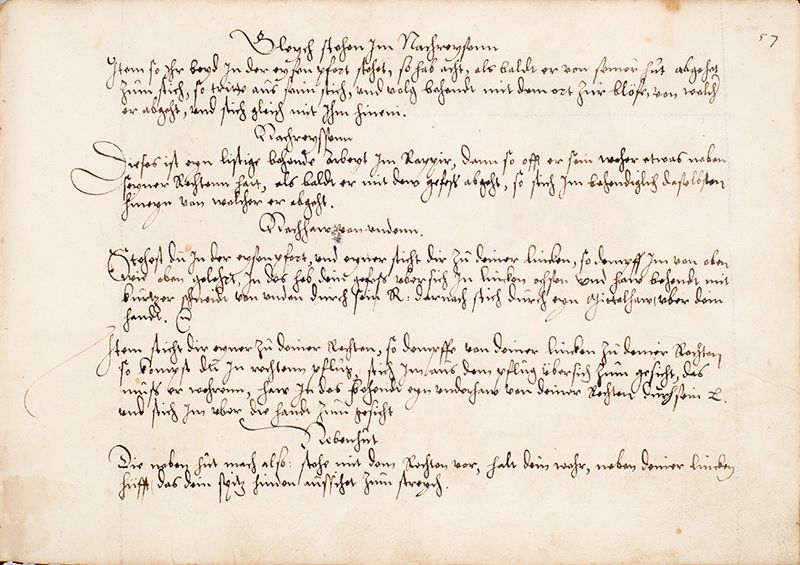 Gleych stehen Im Nachreysenn
57
Item so Ihr beyd In der eysen pfort stehet, so hab acht, als baldt er von seiner hut abgehet
zum stich, so tritt aus seim stich, und volg behendt mit dem ort zur blöse, von welch
er abgeht, und stich gleich mit Ihm hinein.
Nachreyssenn
Dieses ist eyn listige behende Arbeyt Im Rappir, dann so offt er sein wehr etwas neben
seyner Rechten hatt, als baldt er mit dem gefess abgeht, so stich Im behendiglich daselbsten
hineyn von welcher er abgeht.
Nachhaw von undenn.
Stehest du In der eysenpfort, und eyner sticht dir zu deiner lincken, so dempff Im von oben
wie oben gelehrt, In des heb dein gefess ubersich In lincken ochsen und haw behendt mit
kurtzer schneidt von unden durch sein R: darnach stich durch eyn Mittelhaw uber dein
handt.
Item sticht dir eyner zu deiner Rechten, so dempffe von deiner lincken zu deiner Rechten
so kompst du In rechtenn pflug, stich Im aus dem pflug übersich zum gesicht, das
muss er wehrenn, haw In des behendt eyn underhaw von deiner Rechten durch sein L.
und stich Im uber die handt zum gesicht
Nebenhut
Die neben hut mach also: stehe mit dem Rechten vor, halt dein wehr, neben deiner lincken
hüfft, das dein spitz hinden aussstehet zum streych.